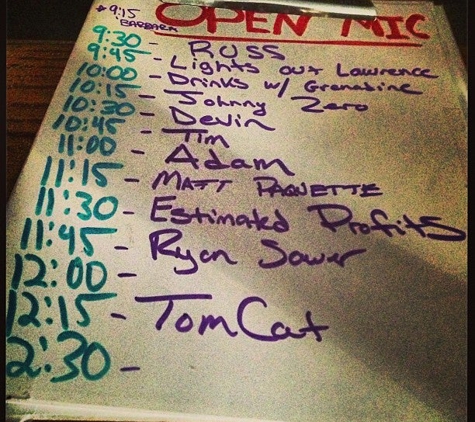 *9:15 OPEN MIC
"BARBARA
9:30 - RUSS
9:45 - Lights out Lawrence
10:00 - Drinks w/ Grenadine
10:15 - Johnny Zero
10:30 - Devin
10:45 - Tim
11:00 - Adam
11:15 - MATT PAQUETTE
11:30 - Estimated Profits
11:45 - Ryan Sawer
12:00 -
12:15 - TomCat
2:30 -